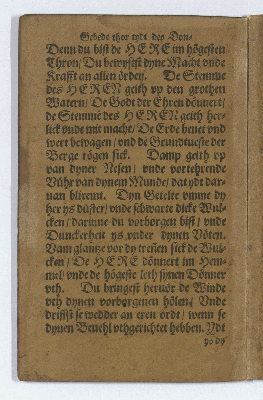 Gebede thor tydt des Don-
Denn du bist de HERE im högesten
Thron / Du bewysest dyne Macht vnde
Krafft an allen örden. De Stemme
des HEREN geith vp den grothen
Watern / De Godt der Ehren dönnert /
de Stemme des HEREN geith her-
lick vnde mit macht / De Erde beuet vnd
wert bewagen / vnd de Grundtueste der
Berge rögen sick. Damp geith vp
van dyner Nesen / vnde vortehrende
Vühr van dynem Munde / dat ydt dar-
uan blixemt. Dyn Getelte vmme dy
her ys düster / vnde schwarte dicke Wul-
cken / darinne du vorborgen bist / vnde
Dunckerheit ys vnder dynen Vöten.
Vam glantze vor dy trenen sick de Wul-
cken / De HERE dönnert im Hem-
mel / vnde de högeste leth synen Dönner
vth. Du bringest heruör de Winde
vth dynen vorborgenen hölen / Vnde
driffst se wedder an eren ordt / wenn se
dynen Beuehl vthgerichtet hebben. Ydt
ys dy